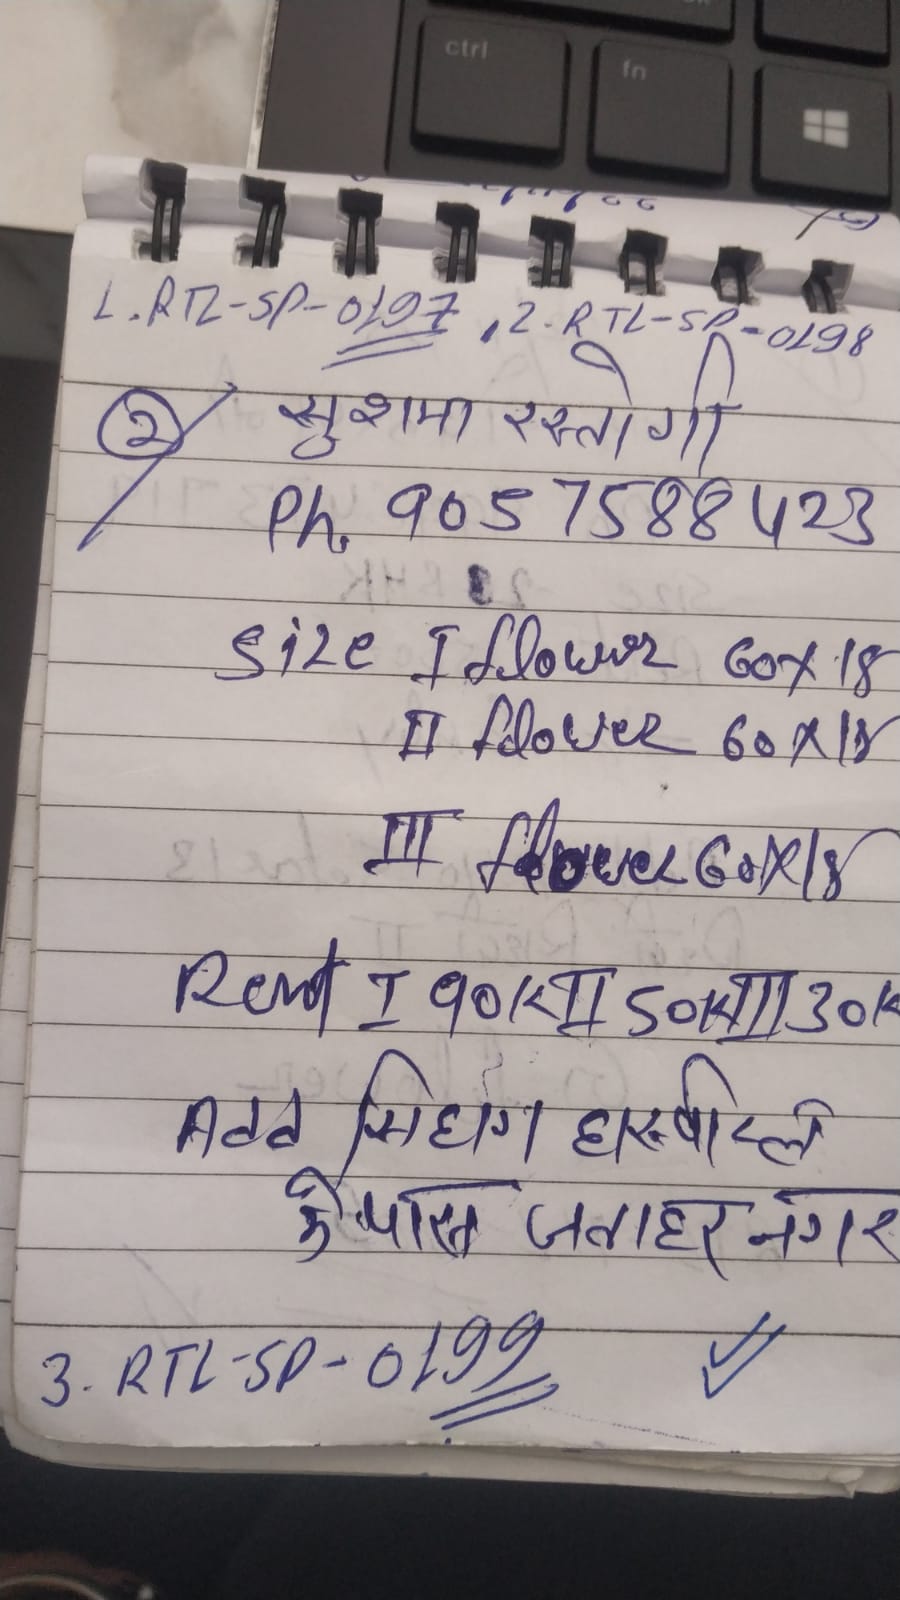 ctrl
fn
1. RTL-SP-0197, 2. RTL-SP-0198
2 सुशमा रस्तोगी
Ph. 9057588423
Size I flower 60x18
II flower 60x18
III flower 60x18
Rent I 90K II 50K III 30K
Add सिहाग हास्पीटल
के पास जवाहर नगर
3. RTL-SP-0199